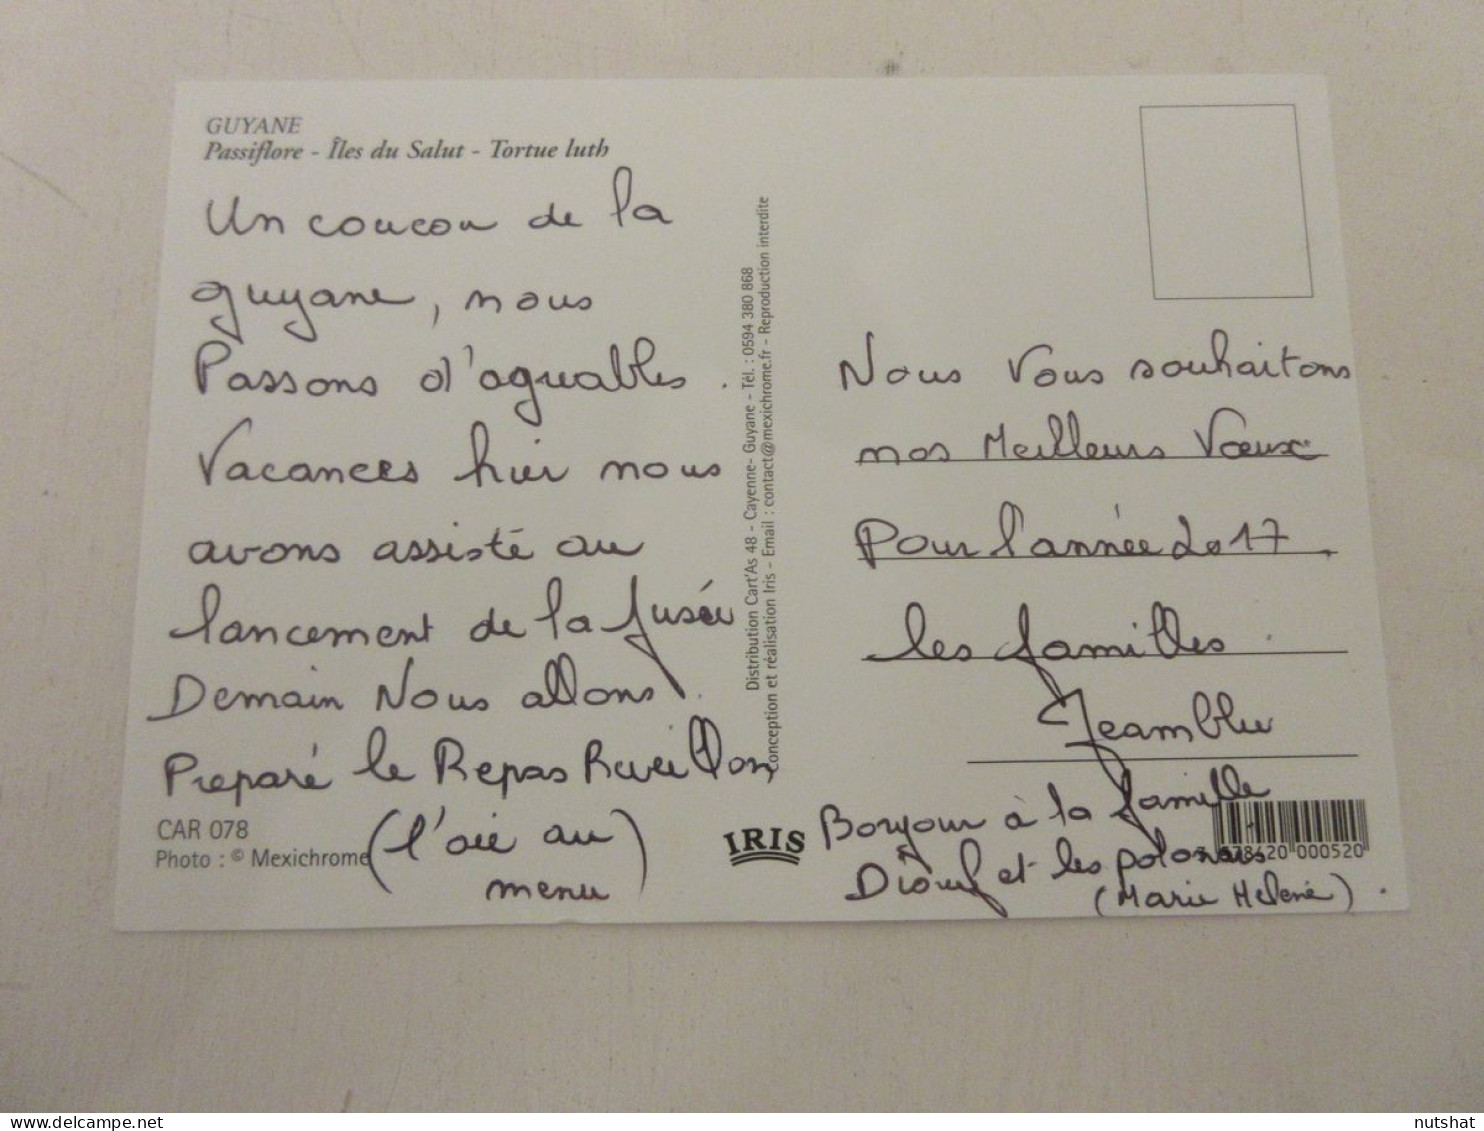 GUYANE
Passiflore - Îles du Salut - Tortue luth
Un coucou de la
guyane, nous
Passons d'agreables
Vacances hier nous
avons assisté au
lancement de la fusée
Demain Nous allons
Preparé le Repas Reveillon
(l'oie au
menu)
CAR 078
Photo : © Mexichrome
Distribution Cart'As 48 - Cayenne- Guyane - Tél. : 0594 380 868
Conception et réalisation Iris - Email : contact@mexichrome.fr - Reproduction interdite
IRIS
Nous Vous souhaitons
nos Meilleurs Vœux
Pour l'année 2017.
les familles
Bonjour à la famille
Diouf et les polonais
(Marie Helene).
678420 000520
www.delcampe.net
nutshat